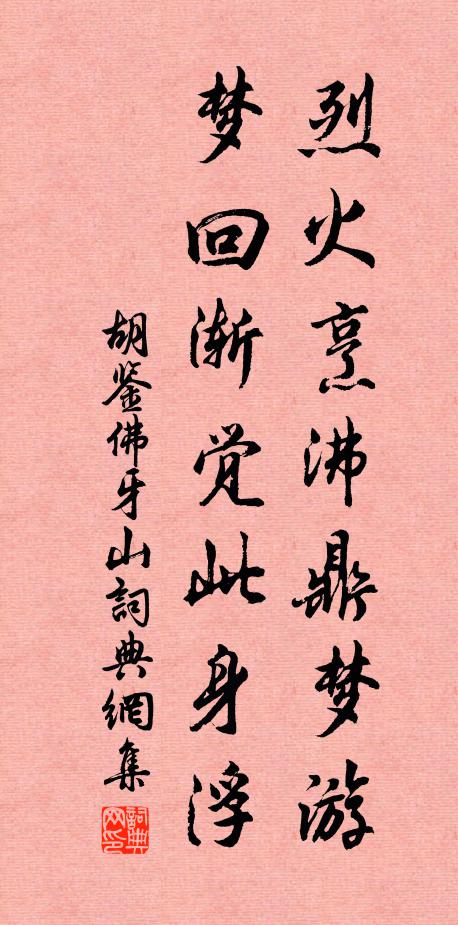 烈火烹沸鼎梦游
梦回渐觉此身浮
胡鉴佛牙山詞典網集
詞典网印